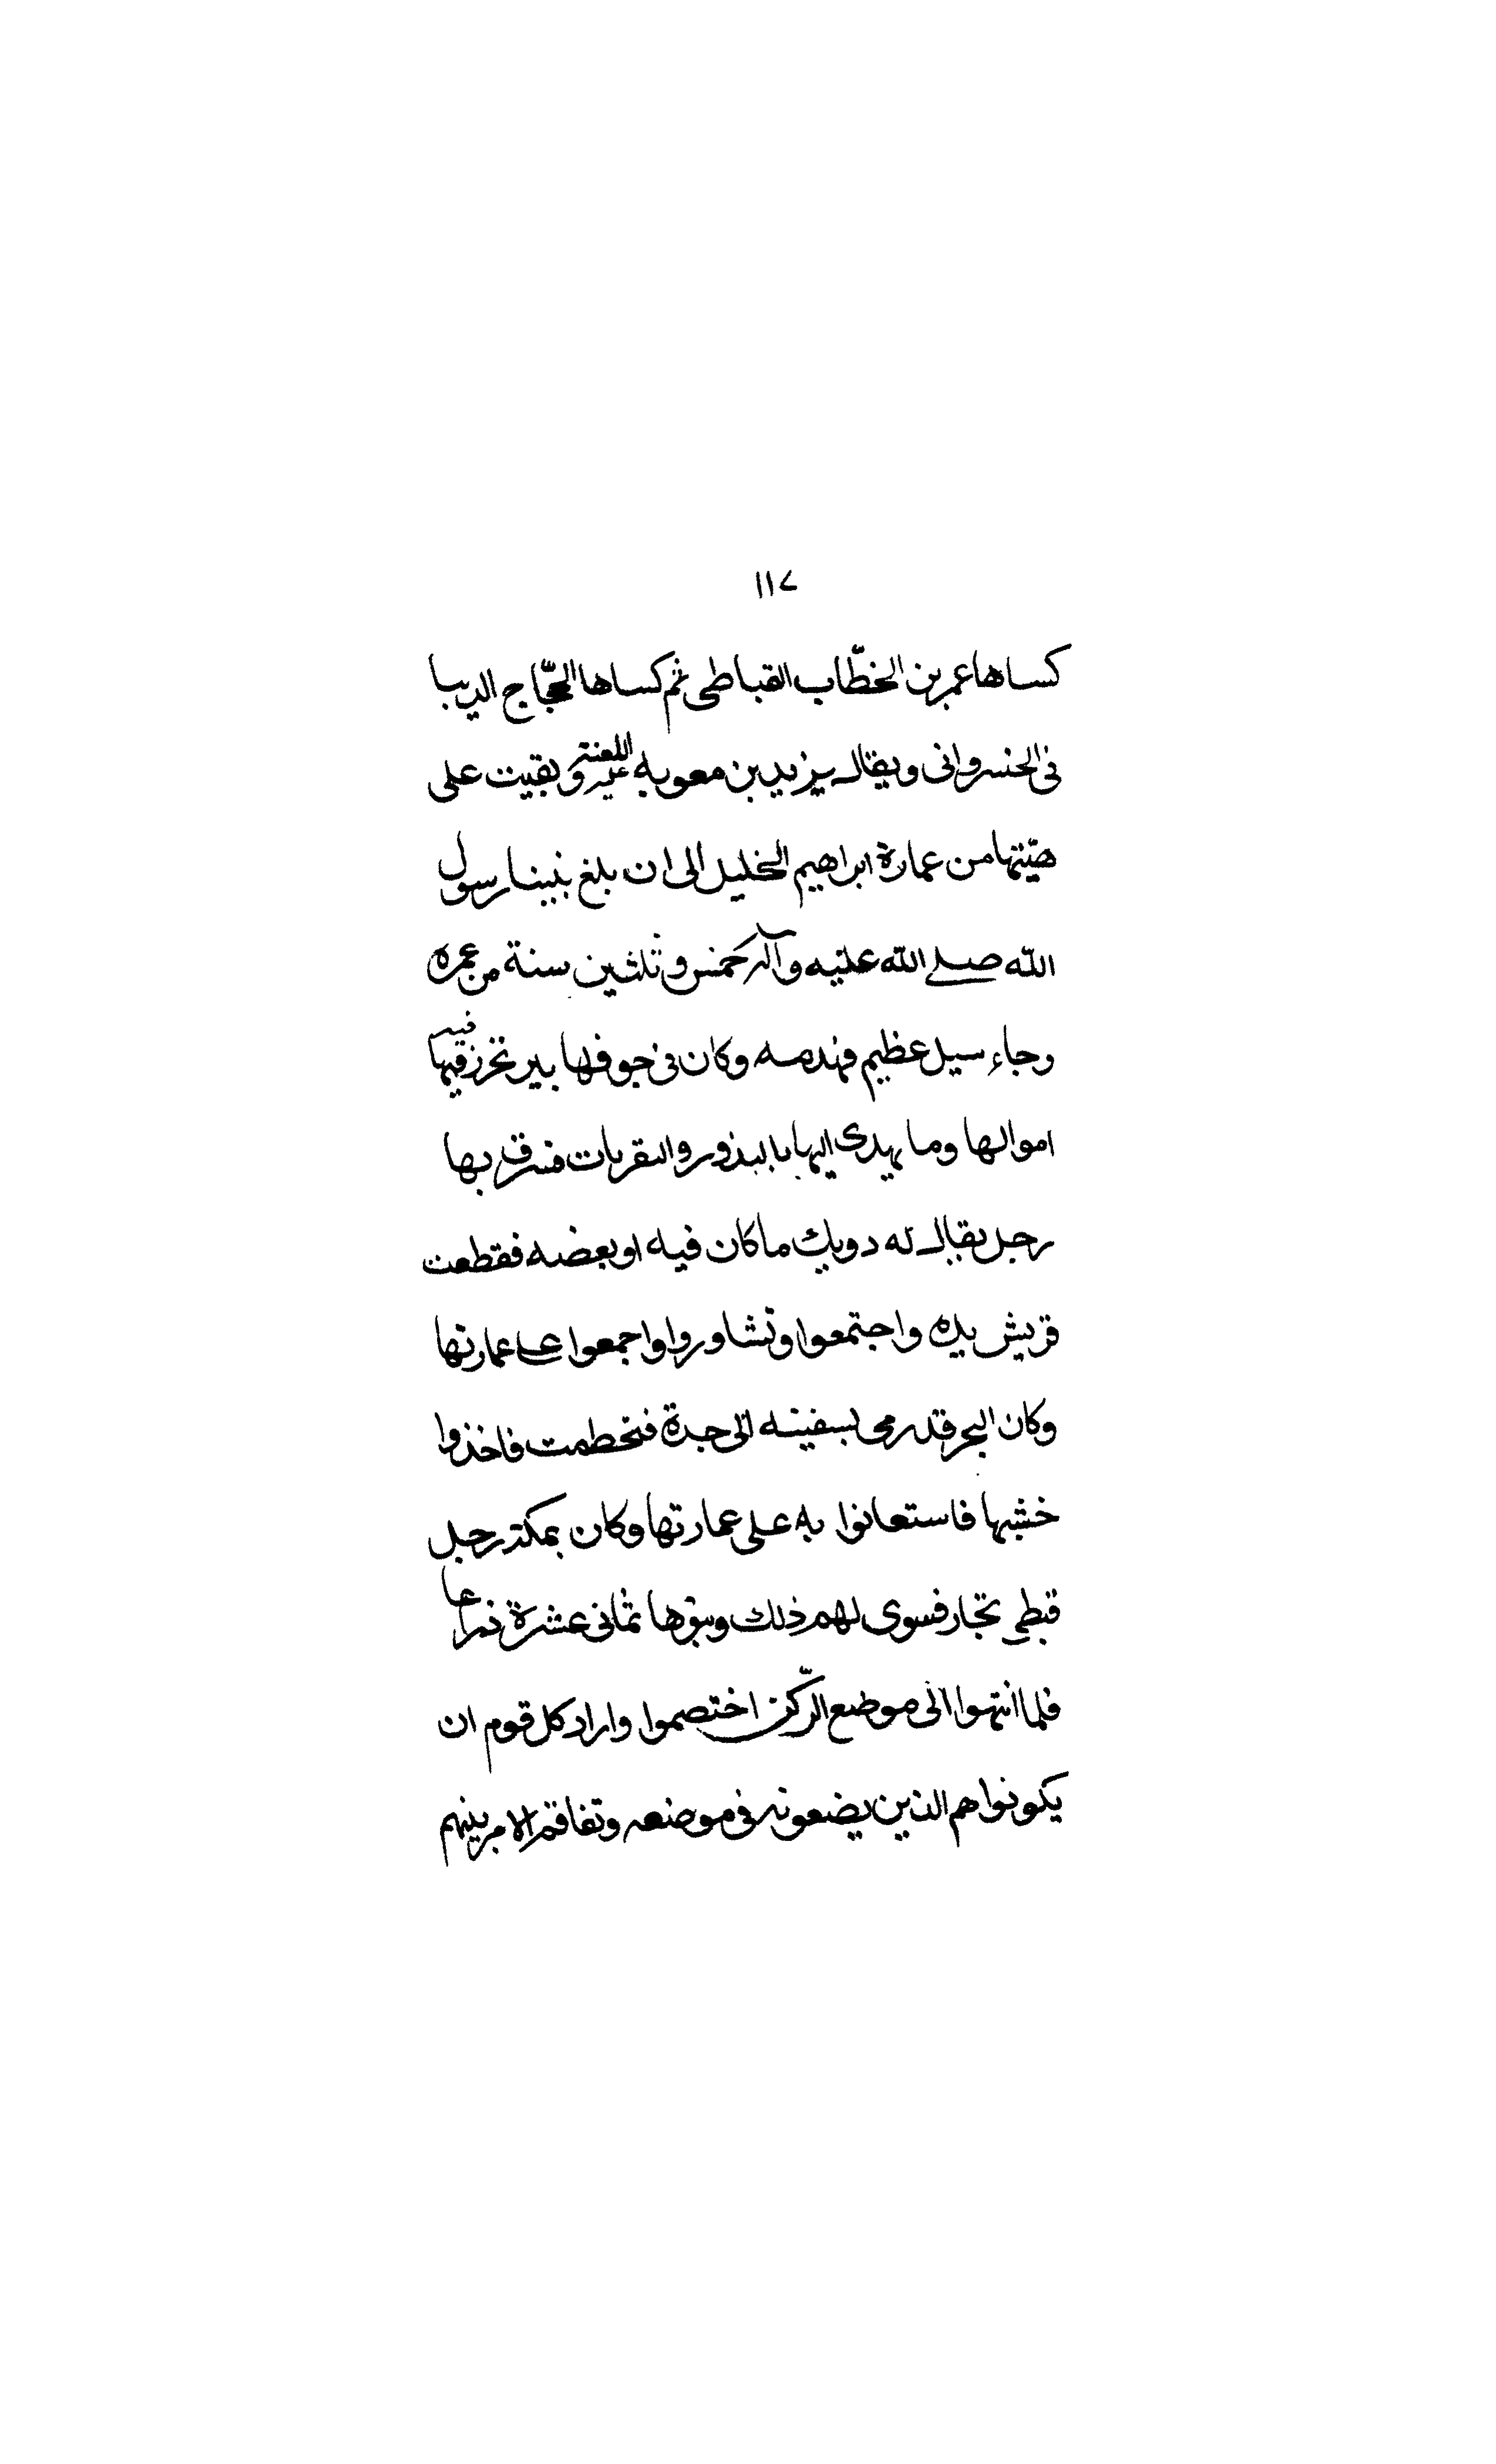 ١١٧
كساها عمر بن الخطّاب القباطى ثم كساها الحجّاج الديبا
نى الخسروانى ويقال يزيد بن معويه عليه اللعنة وبقيت على
هيّتها من عمارة ابراهيم الخليل الى ان بلغ نبينا رسول
الله صلى الله عليه وآله خمس وثلثين سنة من عمره
وجاء سيل عظيم فهدمه وكان فى جوفها بير تحرز فيها فيه
اموالها وما يهدى اليها بالنذور والقربات فسرق بها
رجل يقال له دويك ما كان فيه او بعضه فقطعت
قريش يده واجتمعوا وتشاوروا واجمعوا على عمارتها
وكان البحر قد رمى بسفينه الى جدة فتحطمت فاخذوا
خشبها فاستعانوا به على عمارتها وكان بمكة رجل
قبطى نجار فسوى لهم ذلك وبنوها ثمانى عشرة ذراعا
فلما انتهوا الى موضع الرّكن اختصموا واراد كل قوم ان
يكونوا هم الذين يضعونه فى موضعه وتفاقم الامر بينهم